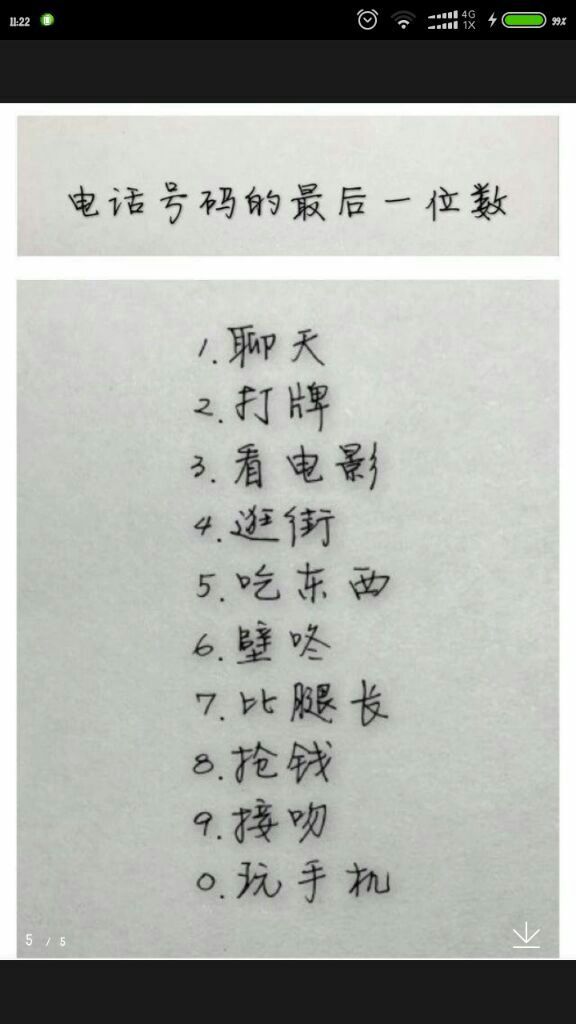 11:22 4G 1X 99%
电话号码的最后一位数
1.聊天
2.打牌
3.看电影
4.逛街
5.吃东西
6.壁咚
7.比腿长
8.抢钱
9.接吻
0.玩手机
5 / 5